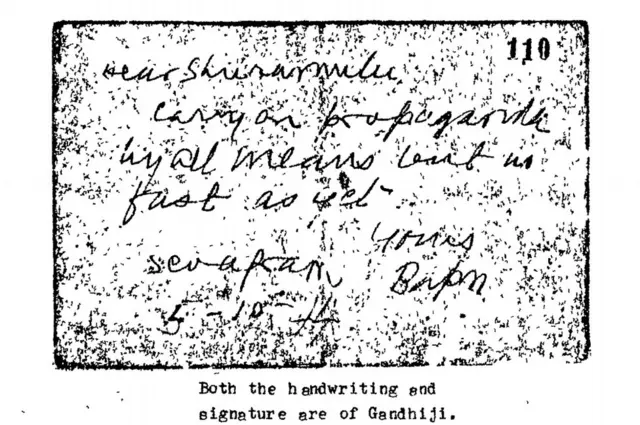 110
Dear Shriramulu,
Carry on propaganda
by all means but no
fast as yet
Yours
Sevagram Bapu
5-10-
Both the handwriting and
signature are of Gandhiji.